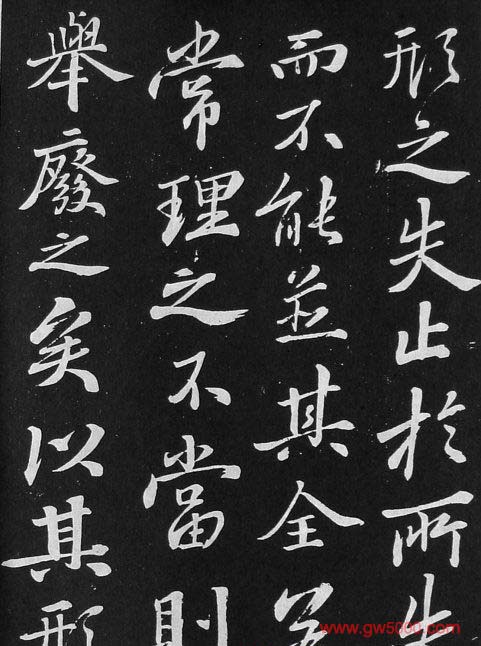 形之失止於所失
而不能並其全若
常理之不當則
舉廢之矣以其形
www.gw5000.com